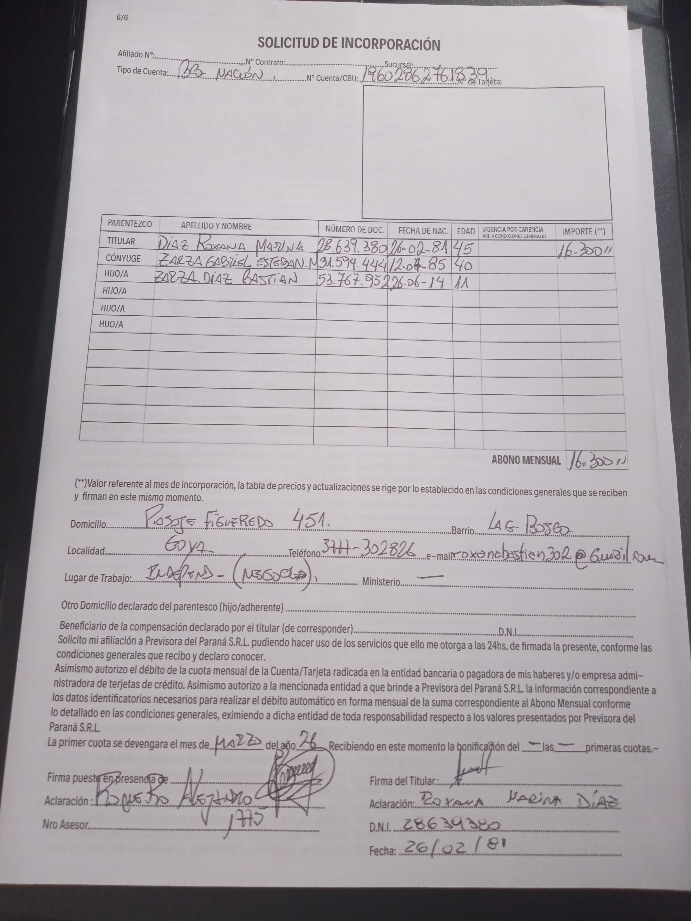 6/6
SOLICITUD DE INCORPORACIÓN
Afiliado Nº: Nº Contrato: Sucursal:
Tipo de Cuenta: Nº Cuenta/CBU: 19602862761839 Nº de Tarjeta:
NACIÓN
PARENTEZCO APELLIDO Y NOMBRE NÚMERO DE DOC. FECHA DE NAC. EDAD VIGENCIA POR CARENCIA IMPORTE (**)
ART. 4 CONDICIONES GENERALES
TITULAR DÍAZ ROXANA MARINA 28.639.380 26-02-81 45 16.300"
CÓNYUGE ZARZA GABRIEL ESTEBAN.M 31.594.444 12.07-85 40
HIJO/A ZARZA DÍAZ BASTIAN 53.767.952 26-06-14 11
HIJO/A
HIJO/A
HIJO/A
ABONO MENSUAL 16.300"
(**)Valor referente al mes de incorporación, la tabla de precios y actualizaciones se rige por lo establecido en las condiciones generales que se reciben
y firman en este mismo momento.
Domicilio PASAJE FIGUEREDO 451. Barrio
Localidad GOYA Teléfono 3777-302826 e-mail
Lugar de Trabajo: INDEPEND- (NEGOCIO), Ministerio —
Otro Domicilio declarado del parentesco (hijo/adherente)
Beneficiario de la compensación declarado por el titular (de corresponder) D.N.I.
Solicito mi afiliación a Previsora del Paraná S.R.L. pudiendo hacer uso de los servicios que ello me otorga a las 24hs. de firmada la presente, conforme las
condiciones generales que recibo y declaro conocer.
Asimismo autorizo el débito de la cuota mensual de la Cuenta/Tarjeta radicada en la entidad bancaria o pagadora de mis haberes y/o empresa admi-
nistradora de terjetas de crédito. Asimismo autorizo a la mencionada entidad a que brinde a Previsora del Paraná S.R.L. la información correspondiente a
los datos identificatorios necesarios para realizar el débito automático en forma mensual de la suma correspondiente al Abono Mensual conforme
lo detallado en las condiciones generales, eximiendo a dicha entidad de toda responsabilidad respecto a los valores presentados por Previsora del
Paraná S.R.L.
La primer cuota se devengara el mes de MARZO del año 26 Recibiendo en este momento la bonificación del — las — primeras cuotas.-
Firma puesta en presencia de Firma del Titular:
Aclaración: ROQUE RO ALEJANDRO Aclaración: ROXANA MARINA DÍAZ
Nro Asesor 1775 D.N.I. 28639380
Fecha: 26/02/81